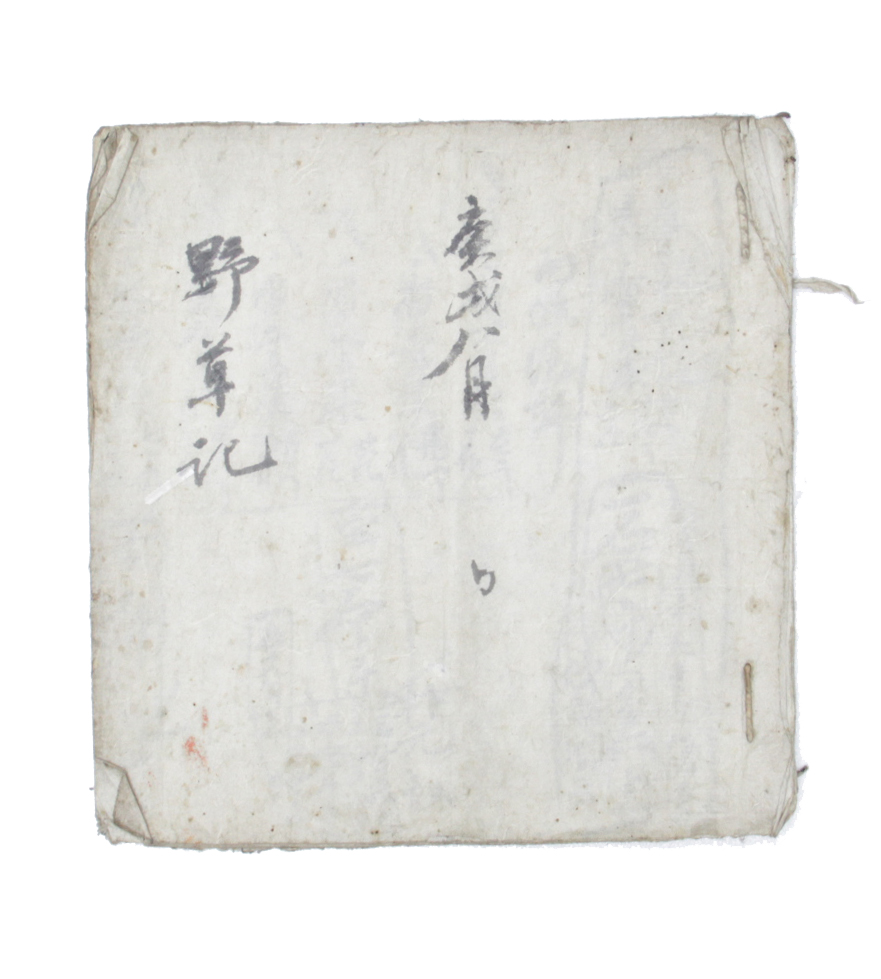 庚戌八月 日
野草記